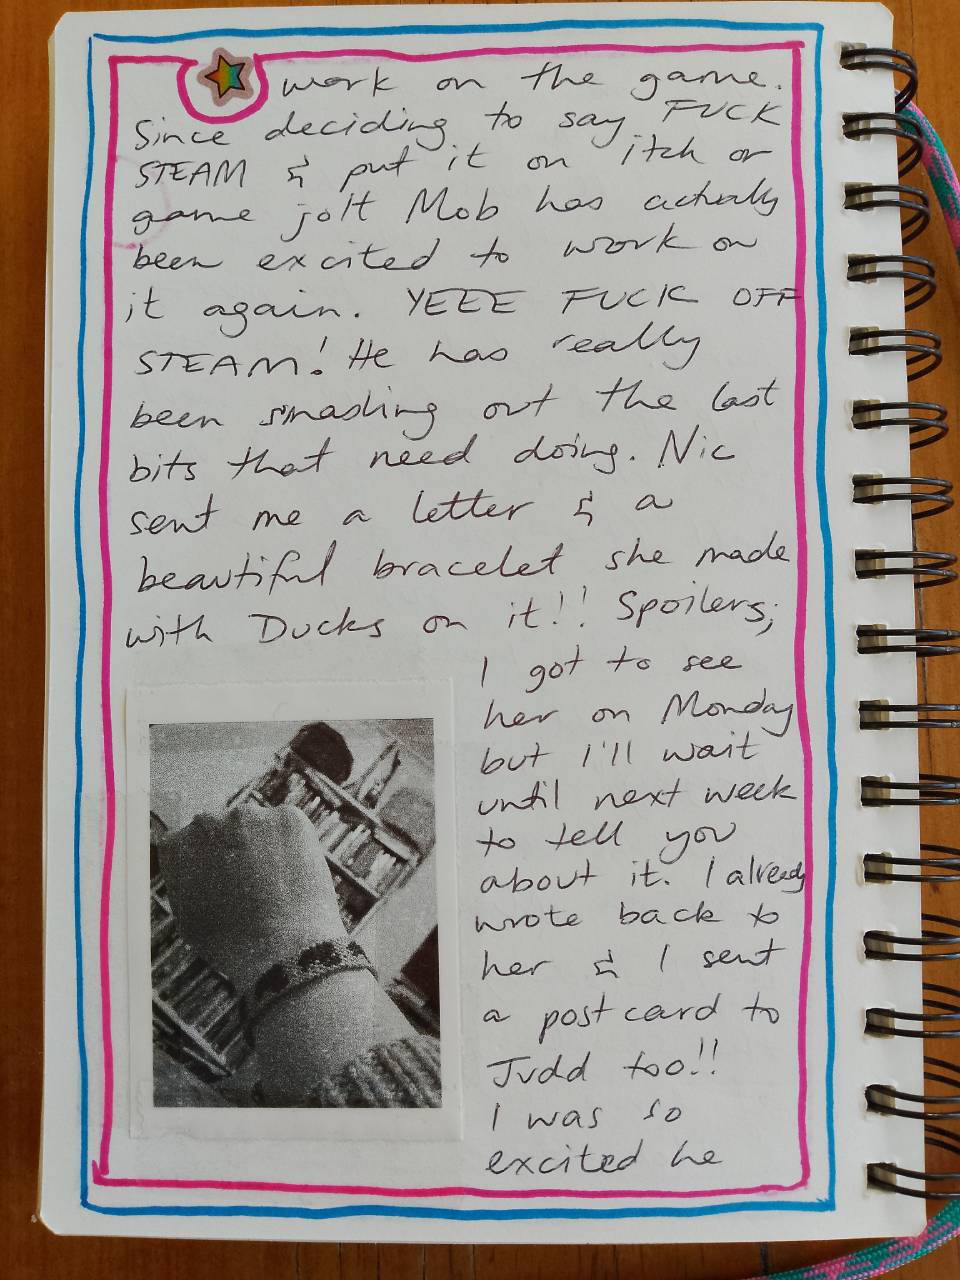 work on the game.
Since deciding to say FUCK
STEAM & put it on itch or
game jolt Mob has actually
been excited to work on
it again. YEEE FUCK OFF
STEAM! He has really
been smashing out the last
bits that need doing. Nic
sent me a letter & a
beautiful bracelet she made
with Ducks on it!! Spoilers;
I got to see
her on Monday
but I'll wait
until next week
to tell you
about it. I already
wrote back to
her & I sent
a postcard to
Judd too!!
I was so
excited he